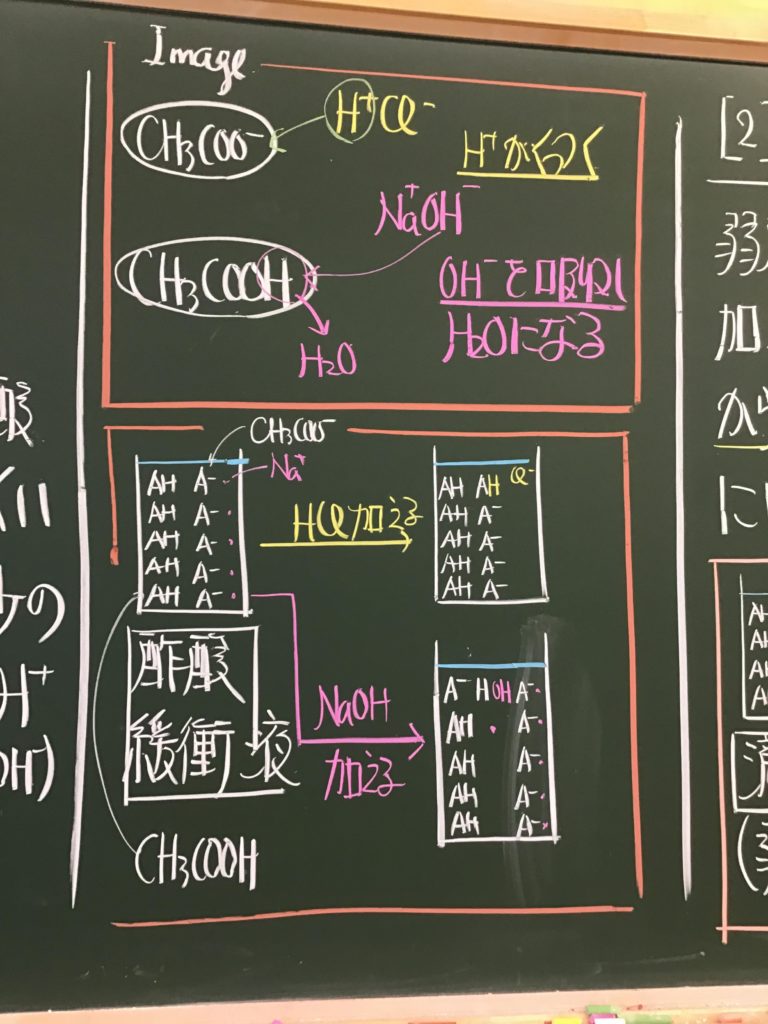 酸
の
H⁺
OH⁻)
Image
CH₃COO⁻
H⁺Cl⁻
H⁺がくっつく
Na⁺OH⁻
CH₃COOH
OH⁻を吸収し
H₂Oになる
H₂O
CH₃COO⁻
Na⁺
AH A⁻
AH A⁻
AH A⁻
AH A⁻
AH A⁻
HCl加える
AH AH Cl⁻
AH A⁻
AH A⁻
AH A⁻
AH A⁻
酢酸
緩衝液
CH₃COOH
NaOH
加える
A⁻ HOH A⁻
AH A⁻
AH A⁻
AH A⁻
AH A⁻
[2]
弱
加
から
に
AH
AH
AH
AH